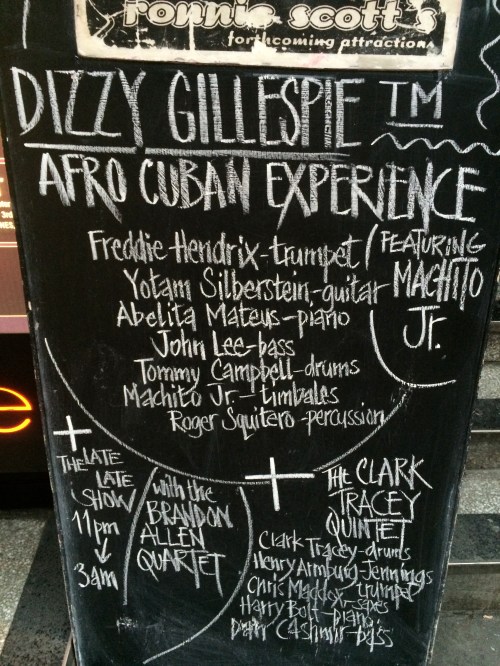 ronnie scott's
forthcoming attractions
DIZZY GILLESPIE TM
AFRO CUBAN EXPERIENCE
Freddie Hendrix-trumpet
Yotam Silberstein-guitar
Abelita Mateus-piano
John Lee-bass
Tommy Campbell-drums
Machito Jr.-timbales
Roger Squitero-percussion
FEATURING
MACHITO
Jr.
+
THE LATE
LATE
SHOW
11pm
↓
3am
with the
BRANDON
ALLEN
QUARTET
+
THE CLARK
TRACEY
QUINTET
Clark Tracey-drums
Henry Armburg-Jennings
trumpet
Chris Maddox-saxes
Harry Bolt-piano
Cashmir-bass
e